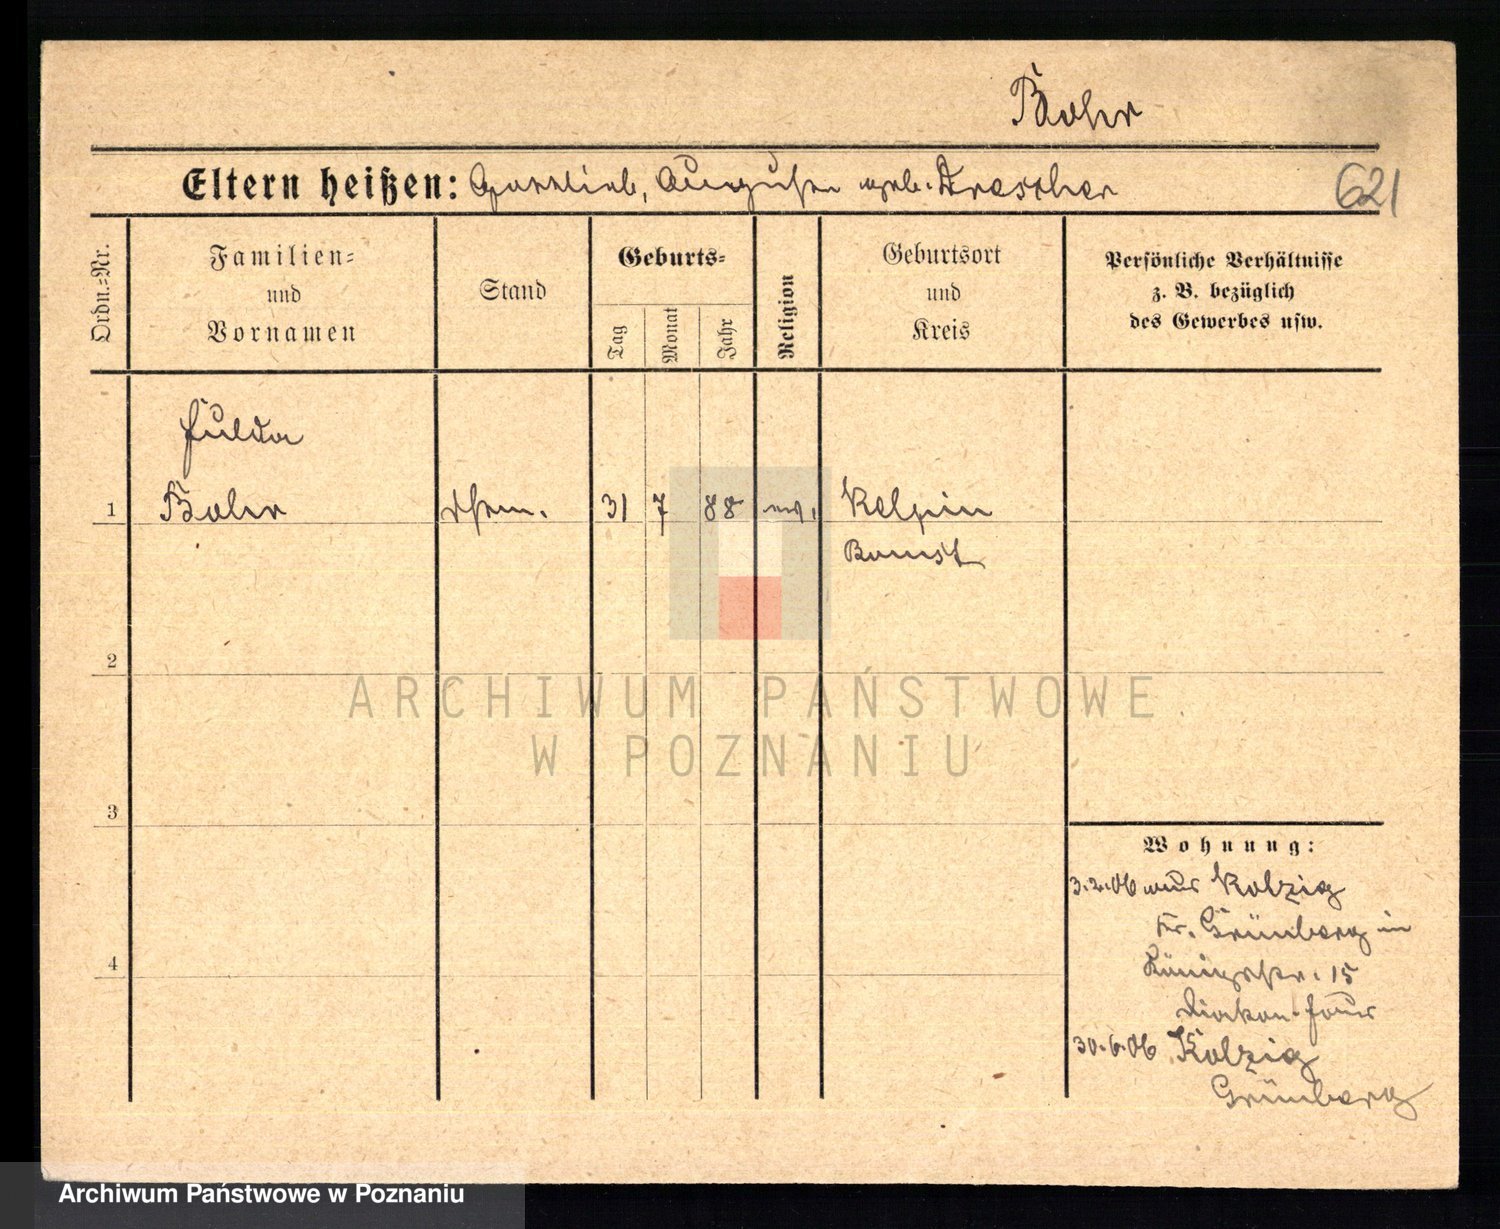 Bohr
Eltern heißen: Gottlieb, Auguste geb. Drescher
621
Ordn.-Nr.
Familien-
und
Vornamen
Stand
Geburts-
Tag
Monat
Jahr
Religion
Geburtsort
und
Kreis
Persönliche Verhältnisse
z. B. bezüglich
des Gewerbes usw.
Hulda
1 Bohr 31 7 88 ev. Kelpin
Bomst
2
3
4
Wohnung:
3.2.06 aus Kolzig
Kr. Grünberg in
Königstr. 15
Diakon. Haus
30.6.06 Kolzig
Grünberg
ARCHIWUM PAŃSTWOWE
W POZNANIU
Archiwum Państwowe w Poznaniu